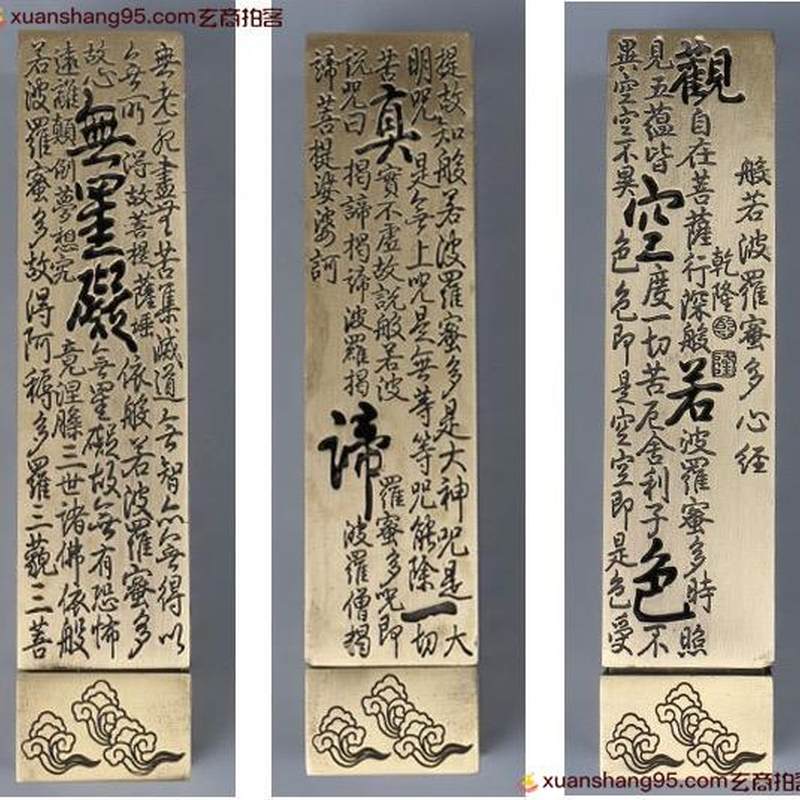 xuanshang95.com玄商拍客
無老死盡無苦集滅道無智亦無得以
無所得故菩提薩埵依般若波羅蜜多
故心無罣礙無罣礙故無有恐怖
遠離顛倒夢想究竟涅槃三世諸佛依般
若波羅蜜多故得阿耨多羅三藐三菩
提故知般若波羅蜜多是大神咒是大
明咒是無上咒是無等等咒能除一切
苦真實不虛故說般若波羅蜜多咒即
說咒曰揭諦揭諦波羅揭諦波羅僧揭
諦菩提娑婆訶
般若波羅蜜多心經
乾隆
觀自在菩薩行深般若波羅蜜多時照
見五蘊皆空度一切苦厄舍利子色不
異空空不異色色即是空空即是色受
xuanshang95.com玄商拍客